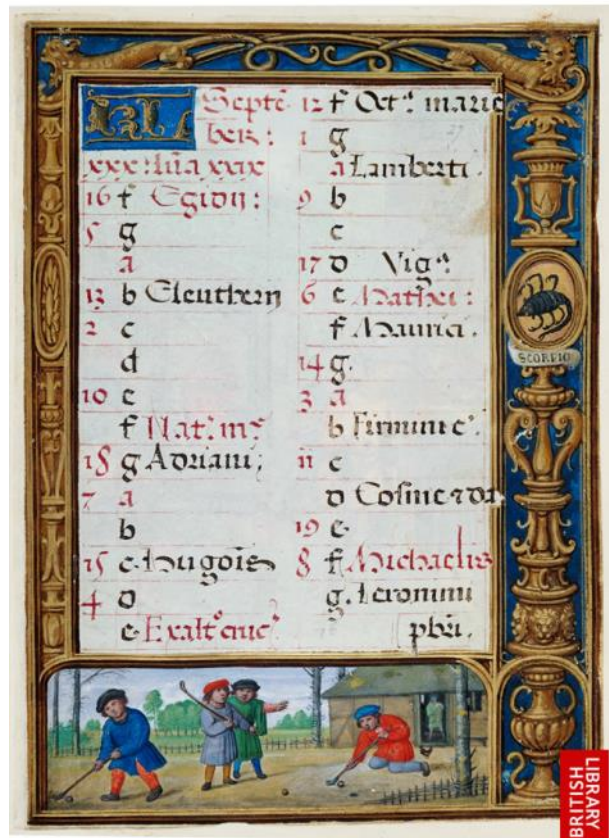 KL Septē
ber:
xxx: lūa xxix
16 f Egidij:
5 g
a
13 b Eleutherij
2 c
d
10 e
f Nat: m:
18 g Adriani:
7 a
b
15 c
4 d
e Exaltᵒ cruc:
12 f Octᵃ: marie
1 g
a Lamberti.
9 b
c
17 d Vigᵃ:
6 e Mathei:
f Maurici.
14 g.
3 a
b Firmini e:
11 c
d Cosme ⁊ da.
19 e.
8 f Michaelis
g. Ieronimi
pbri.
SCORPIO
BRITISH
LIBRARY